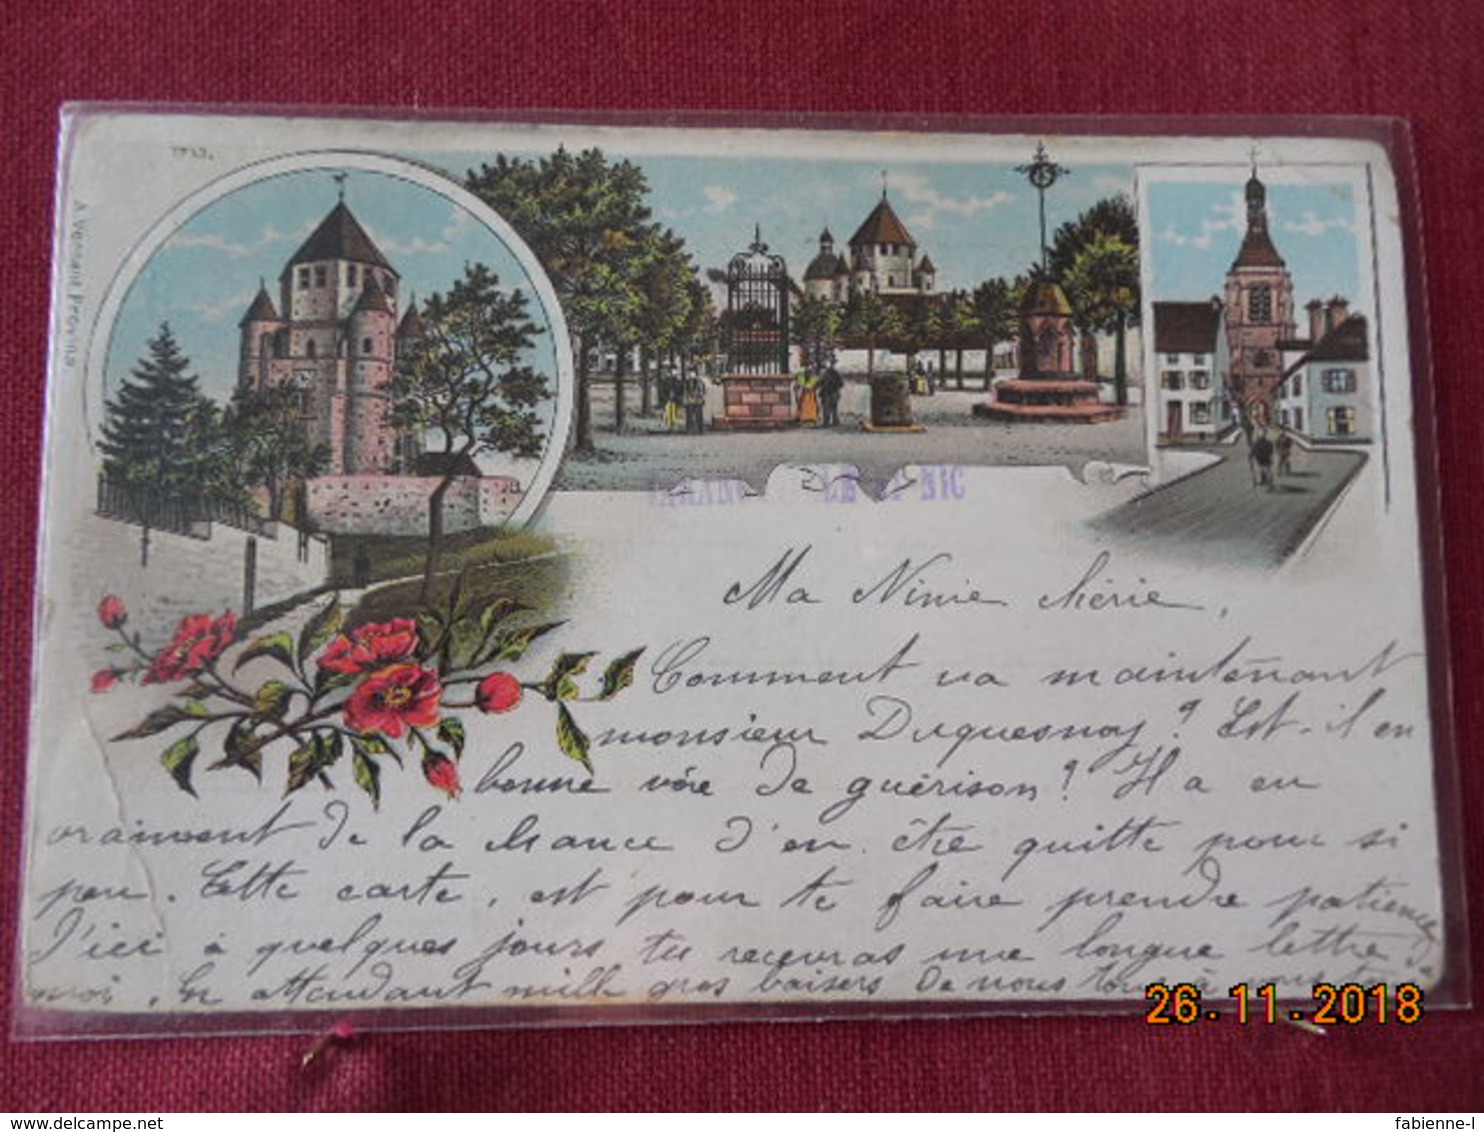 A. Vernant Provins
LE NIC
Ma Ninie chérie,
Comment va maintenant
monsieur Duquesnoy? Est-il en
bonne voie de guérison? Il a eu
vraiment de la chance d'en être quitte pour si
peu. Cette carte, est pour te faire prendre patience
D'ici à quelques jours, tu recevras une longue lettre de
moi, En attendant mille gros baisers de nous tous à vous tous
26.11.2018
fabienne-l